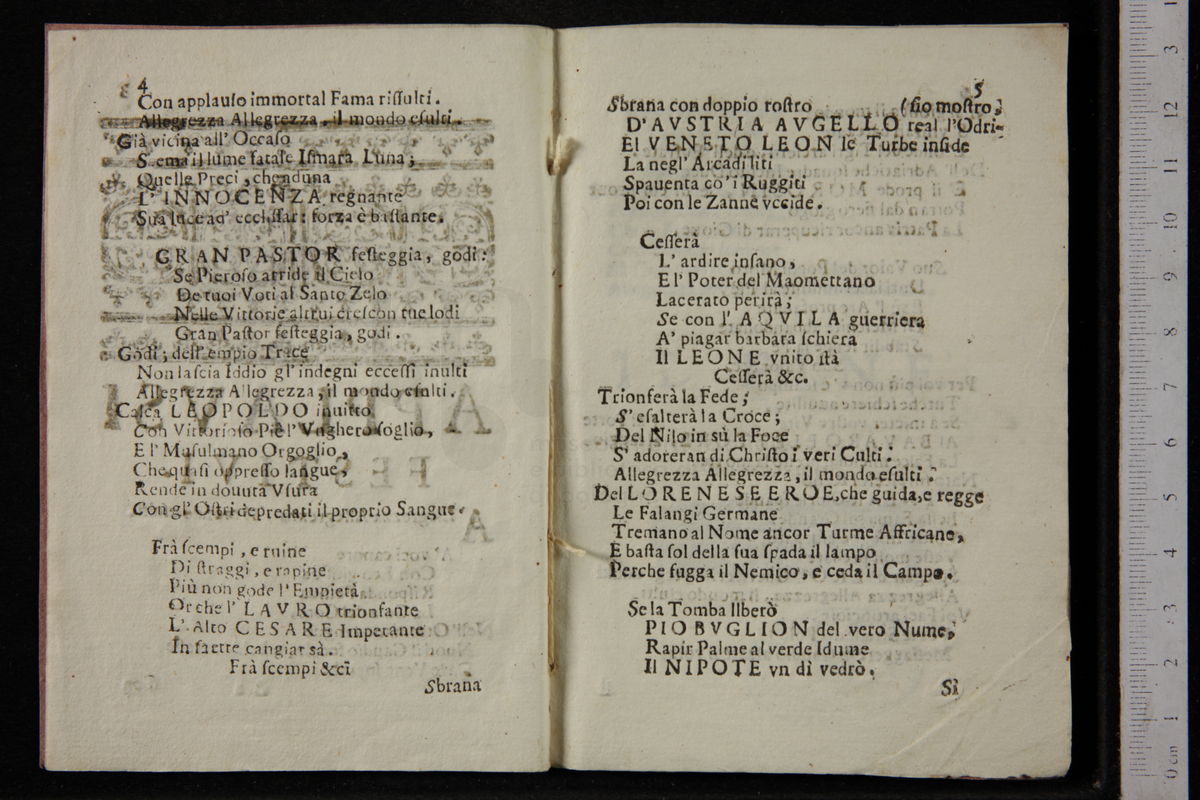 4
Con applauso immortal Fama rissulti.
Allegrezza Allegrezza, il mondo esulti.
Già vicina all' Occaso
Scema il lume fatale Ismara Luna;
Quelle Preci, che aduna
L' INNOCENZA regnante
Sua luce ad' ecclissar: forza è bastante.
GRAN PASTOR festeggia, godi:
Se Pieroso arride il Cielo
De tuoi Voti al Santo Zelo
Nelle Vittorie altrui crescon tue lodi
Gran Pastor festeggia, godi.
Godi; dell' empio Trace
Non lascia Iddio gl' indegni eccessi inulti
Allegrezza Allegrezza, il mondo esulti.
Calca LEOPOLDO inuitto
Con Vittorioso Piè l' Vnghero soglio,
E l' Musulmano Orgoglio,
Che quasi oppresso langue,
Rende in douuta Vsura
Con gl' Ostri depredati il proprio Sangue.
Frà scempi, e ruine
Di straggi, e rapine
Più non gode l' Empietà
Or che l' LAVRO trionfante
L' Alto CESARE Imperante
In saette cangiar sà.
Frà scempi &c.
Sbrana
5
Sbrana con doppio rostro (sio mostro,
D' AVSTRIA AVGELLO real l'Odri-
El VENETO LEON le Turbe infide
La negl' Arcadi liti
Spauenta co' i Ruggiti
Poi con le Zanne vccide.
Cesserà
L' ardire insano,
E l' Poter del Maomettano
Lacerato perirà;
Se con l' AQVILA guerriera
A' piagar barbara schiera
Il LEONE vnito stà
Cesserà &c.
Trionferà la Fede;
S' esalterà la Croce;
Del Nilo in sù la Foce
S' adoreran di Christo i veri Culti.
Allegrezza Allegrezza, il mondo esulti.
Del LORENESE EROE, che guida, e regge
Le Falangi Germane
Tremano al Nome ancor Turme Affricane,
E basta sol della sua spada il lampo
Perche fugga il Nemico, e ceda il Campo.
Se la Tomba liberò
PIO BVGLION del vero Nume,
Rapir Palme al verde Idume
Il NIPOTE vn dì vedrò.
Sì